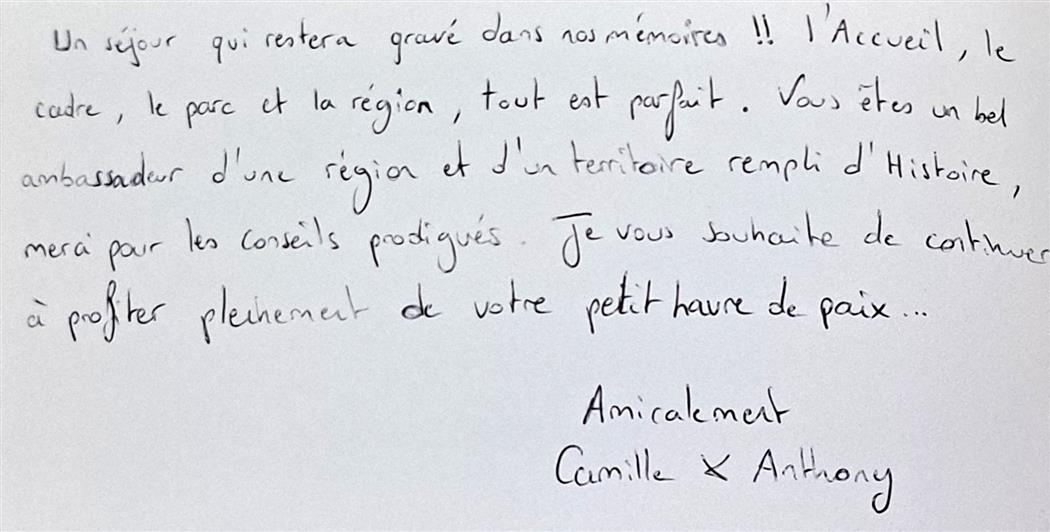 Un séjour qui restera gravé dans nos mémoires !! l'Accueil, le
cadre, le parc et la région, tout est parfait. Vous êtes un bel
ambassadeur d'une région et d'un territoire rempli d'Histoire,
merci pour les conseils prodigués. Je vous souhaite de continuer
à profiter pleinement de votre petit havre de paix...
Amicalement
Camille & Anthony